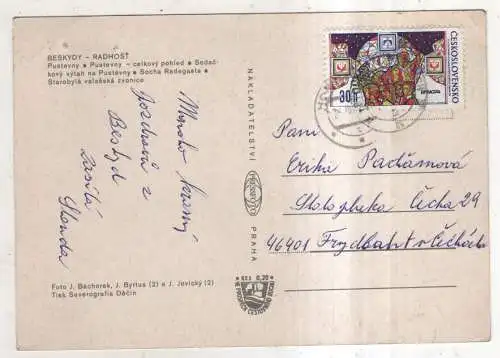 BESKYDY – RADHOŠŤ
Pustevny • Pustevny – celkový pohled • Sedač-
kový výtah na Pustevny • Socha Radegasta •
Starobylá valašská zvonice
Mnoho krásných
pozdravů z
Beskyd
zasílá
NAKLADATELSTVÍ
PRESSFOTO
PRAHA
ČESKOSLOVENSKO
30 h
Paní
Erika
Čechá 29
46401 Frýdlant v Čechách
Foto J. Bachorek, J. Byrtus (2) a J. Jevický (2)
Tisk Severografia Děčín
Kčs 0,20